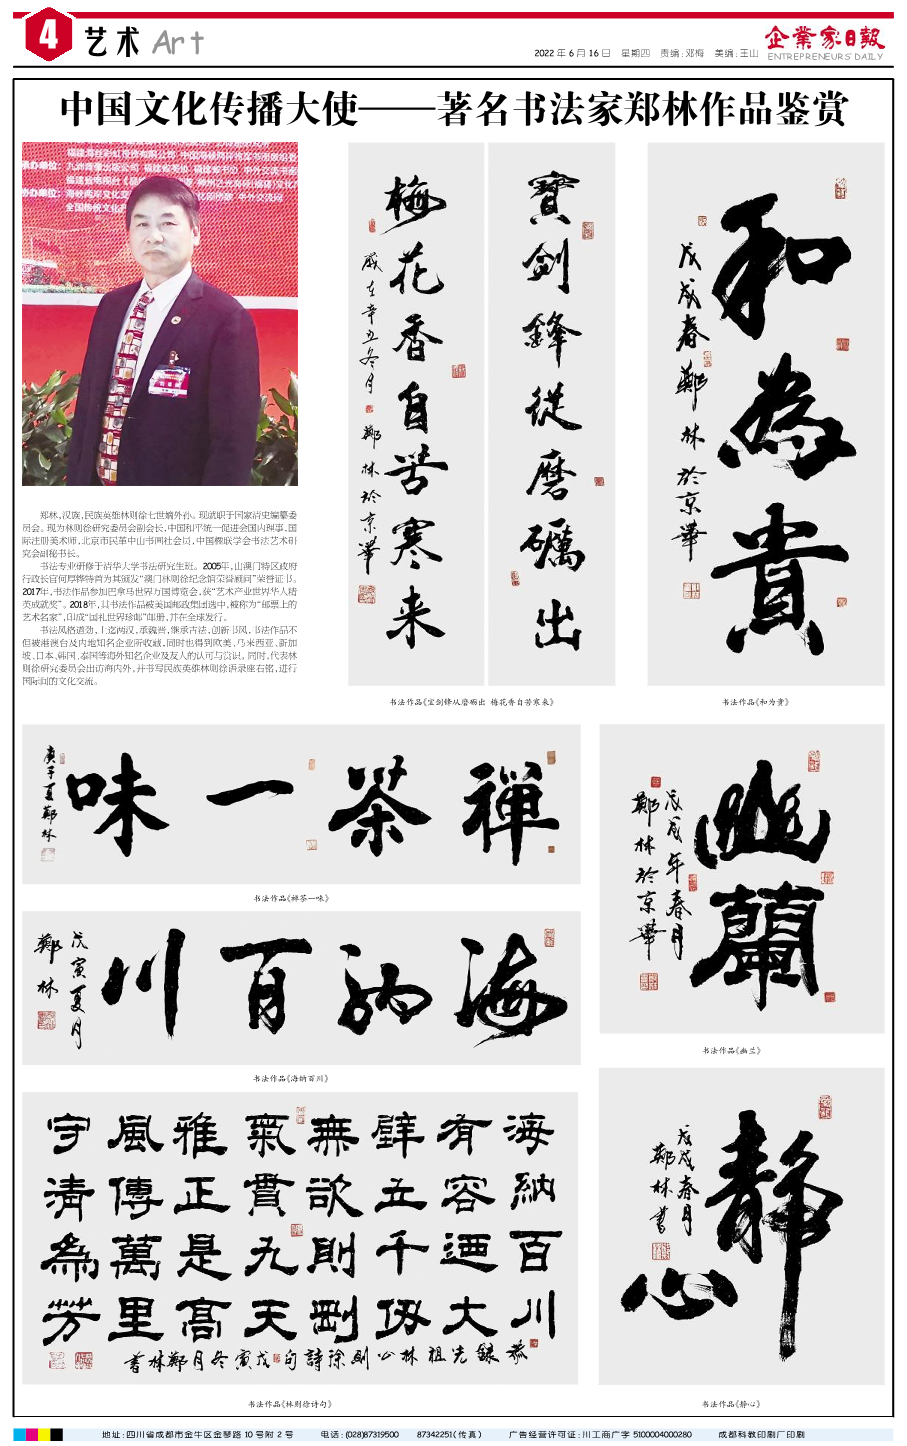 4 艺术 Art
2022年6月16日 星期四 责编:邓梅 美编:王山
企業家日報
ENTREPRENEURS' DAILY
中国文化传播大使——著名书法家郑林作品鉴赏
郑林,汉族,民族英雄林则徐七世嫡外孙。现就职于国家清史编纂委
员会。现为林则徐研究委员会副会长,中国和平统一促进会国内理事,国
际注册美术师,北京市民革中山书画社会员,中国楹联学会书法艺术研
究会副秘书长。
书法专业研修于清华大学书法研究生班。2005年,由澳门特区政府
行政长官何厚铧特首为其颁发“澳门林则徐纪念馆荣誉顾问”荣誉证书。
2017年,书法作品参加巴拿马世界万国博览会,获“艺术产业世界华人精
英成就奖”。2018年,其书法作品被美国邮政集团选中,被称为“邮票上的
艺术名家”,印成“国礼世界珍邮”邮册,并在全球发行。
书法风格遒劲,上迄两汉,承魏晋,继承古法,创新书风,书法作品不
但被港澳台及内地知名企业所收藏,同时也得到欧美、马来西亚、新加
坡、日本、韩国、泰国等海外知名企业及友人的认可与赏识。同时,代表林
则徐研究委员会出访海内外,并书写民族英雄林则徐语录座右铭,进行
国际间的文化交流。
寶劍鋒從磨礪出
梅花香自苦寒来
歲在辛丑冬月 鄭林於京華
书法作品《宝剑锋从磨砺出 梅花香自苦寒来》
和為貴
戊戌春鄭林於京華
书法作品《和为贵》
禪茶一味
庚子夏鄭林
书法作品《禅茶一味》
海納百川
戊寅夏月
鄭林
书法作品《海纳百川》
幽蘭
戊戌年春月
鄭林於京華
书法作品《幽兰》
海納百川
有容迺大
壁立千仞
無欲則剛
氣貫九天
雅正是高
風傳萬里
守清為芳
恭錄先祖林公則徐詩句戊寅冬月鄭林書
书法作品《林则徐诗句》
靜心
戊戌春月
鄭林書
书法作品《静心》
地址:四川省成都市金牛区金琴路10号附2号 电话:(028)87319500 87342251(传真) 广告经营许可证:川工商广字5100004000280 成都科教印刷厂印刷